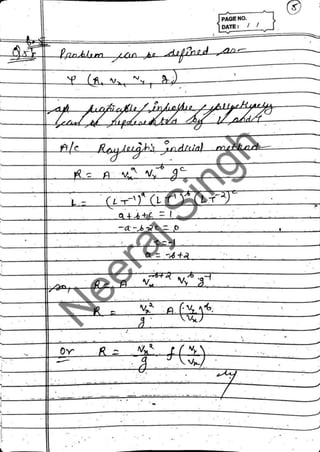 5
PAGE NO.
DATE: / /
Q.5
Problem can be defined as
φ (R, Vx, Vy, g)
A/c Rayleigh's indicial method
R = A Vx^a Vy^b g^c
L = (LT^-1)^a (LT^-1)^b (LT^-2)^c
a + b + c = 1
-a - b - 2c = 0
c = -1
a = -b + 2
so, R = A Vx^-b+2 Vy^b g^-1
R = Vx^2 / g A (Vy / Vx)^b
Or R = Vx^2 / g f (Vy / Vx)
Neeraj Singh